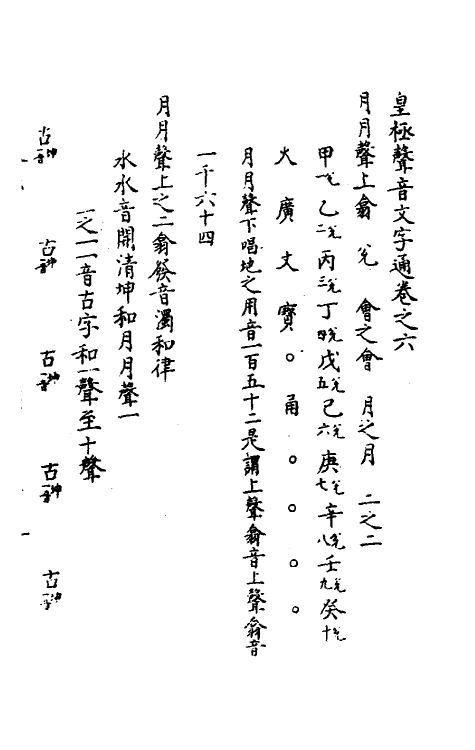 皇極聲音文字通卷之六
月月聲上翕 兊 會之會 月之月 二之二
甲一兊乙二兊丙三兊丁四兊戊五兊己六兊庚七兊辛八兊壬九兊癸十兊
火廣丈寶○甬○○○○
月月聲下唱地之用音一百五十二是謂上聲翕音上聲翕音
一千六十四
月月聲上之二翕發音濁和律
水水音開清坤和月月聲一
一之一一音古字和一聲至十聲
古坤一音 古坤一音 古坤一音 古坤一音 古坤一字